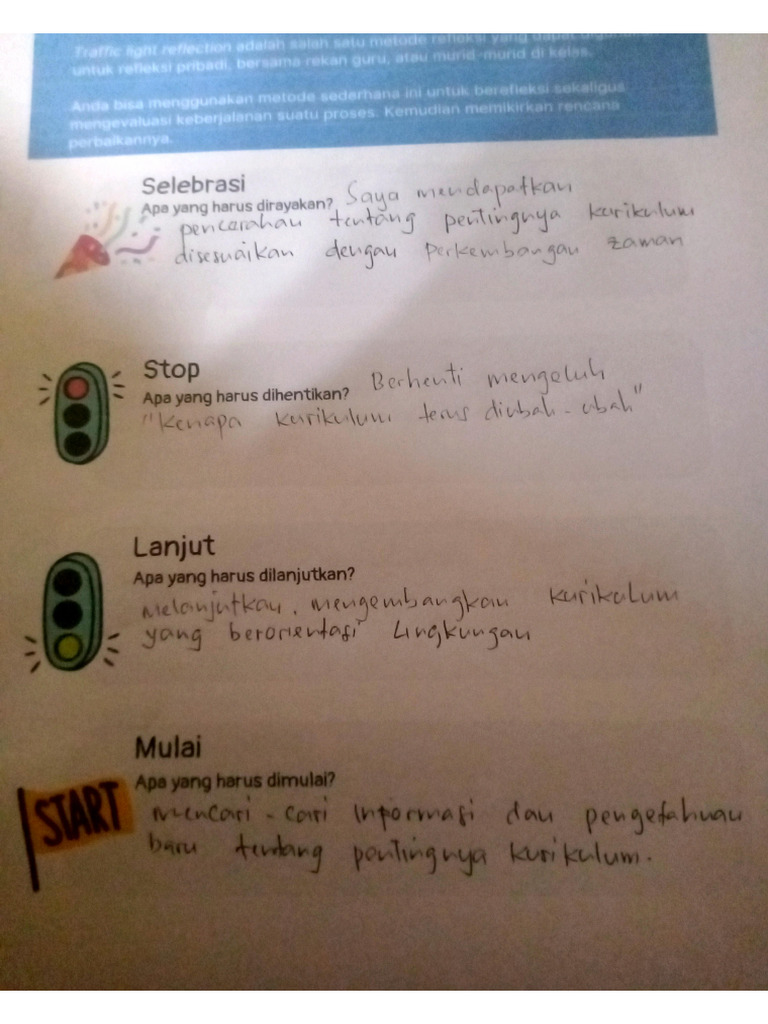 Traffic light reflection adalah salah satu metode refleksi yang dapat
untuk refleksi pribadi, bersama rekan guru, atau murid-murid di kelas.
Anda bisa menggunakan metode sederhana ini untuk berefleksi sekaligus
mengevaluasi keberjalanan suatu proses. Kemudian memikirkan rencana
perbaikannya.
Selebrasi
Apa yang harus dirayakan? Saya mendapatkan
pencerahan tentang pentingnya kurikulum
disesuaikan dengan perkembangan zaman
Stop
Apa yang harus dihentikan? Berhenti mengeluh
"Kenapa kurikulum terus diubah-ubah"
Lanjut
Apa yang harus dilanjutkan?
Melanjutkan, mengembangkan kurikulum
yang berorientasi Lingkungan
Mulai
Apa yang harus dimulai?
START
mencari-cari informasi dan pengetahuan
baru tentang pentingnya kurikulum.